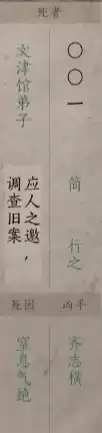 死者
〇〇一
简 行之
文津馆弟子
应人之邀,
调查旧案
凶手
死因
齐志横
窒息气绝